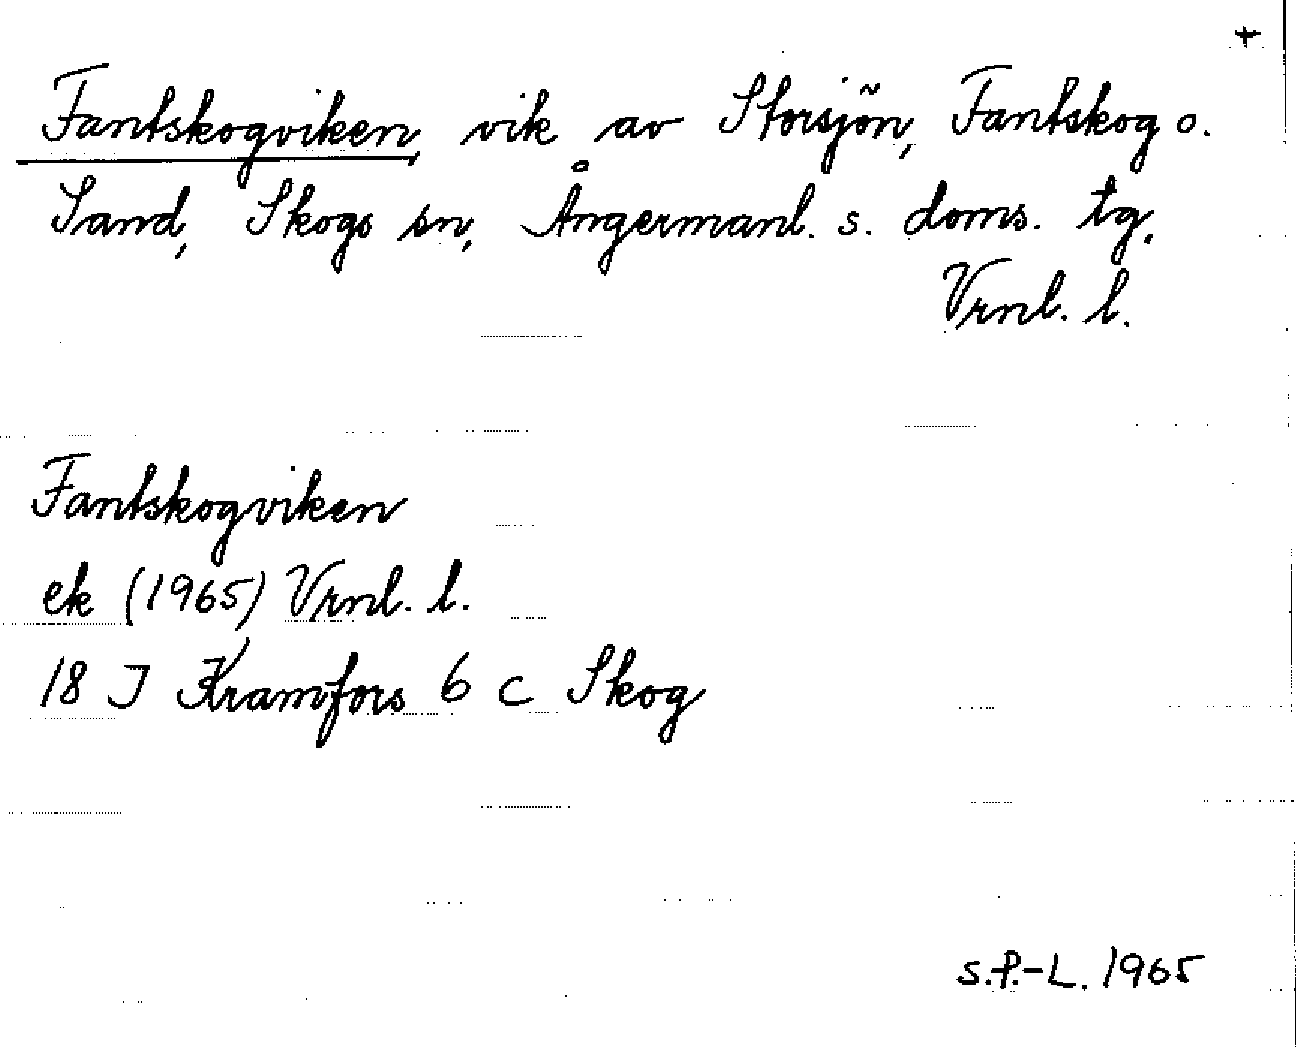 +
Fantskogviken, vik av Storsjön, Fantskog o.
Sand, Skogs sn, Ångermanl. s. doms. tg.
Vrnl. l.
Fantskogviken
ek (1965) Vrnl. l.
18 J Kramfors 6 c Skog
S.P.-L. 1965